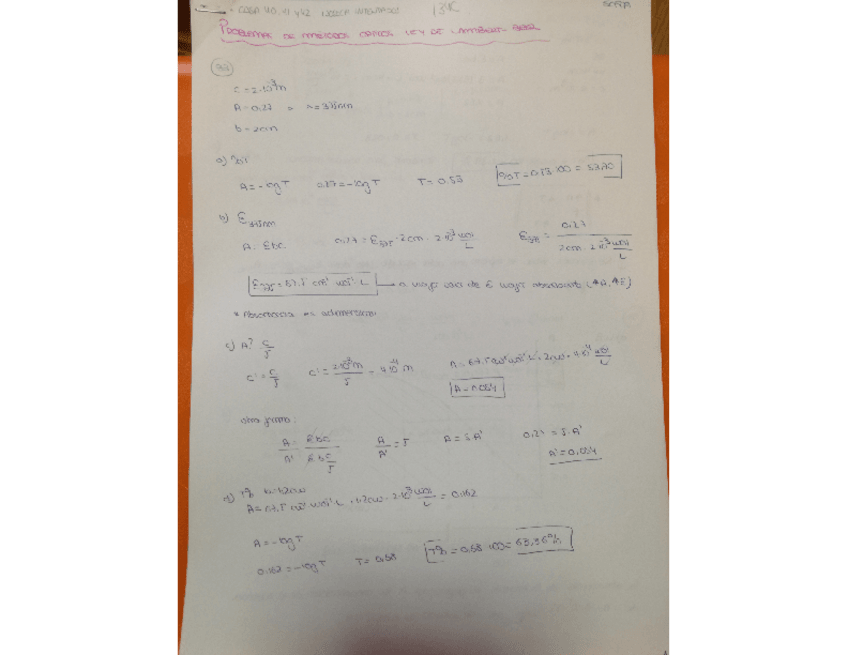 PROBLEMAS DE MÉTODOS ÓPTICOS LEY DE LAMBERT BEER
c = 2·10⁻³M
A = 0,27 λ = 375nm
b = 2cm
a) %T
A = -log T 0,27 = -log T T = 0.53 %T = 0,53·100 = 53,70
b) ε375nm
A = εbc 0,27 = ε375 · 2cm · 2·10⁻³ mol/L ε375 = 0,27 / 2cm · 2·10⁻³ mol/L
ε375 = 67.5 cm⁻¹ mol⁻¹ L a mayor valor de ε mayor absorbancia (↑A, ↑ε)
* Absorbancia es adimensional
c) A? c/5
c' = c/5 c' = 2·10⁻³M/5 = 4·10⁻⁴ M A = 67.5 cm⁻¹ mol⁻¹ L · 2cm · 4·10⁻⁴ mol/L
A = 0.054
otra forma:
A/A' = εbc / εb c/5 A/A' = 5 A = 5·A' 0,27 = 5·A'
A' = 0,054
d) T% b=1.2cm
A = 67.5 cm⁻¹ mol⁻¹ L · 1.2cm · 2·10⁻³ mol/L = 0.162
A = -log T
0.162 = -log T T = 0,68 T% = 0.68·100 = 68,86%